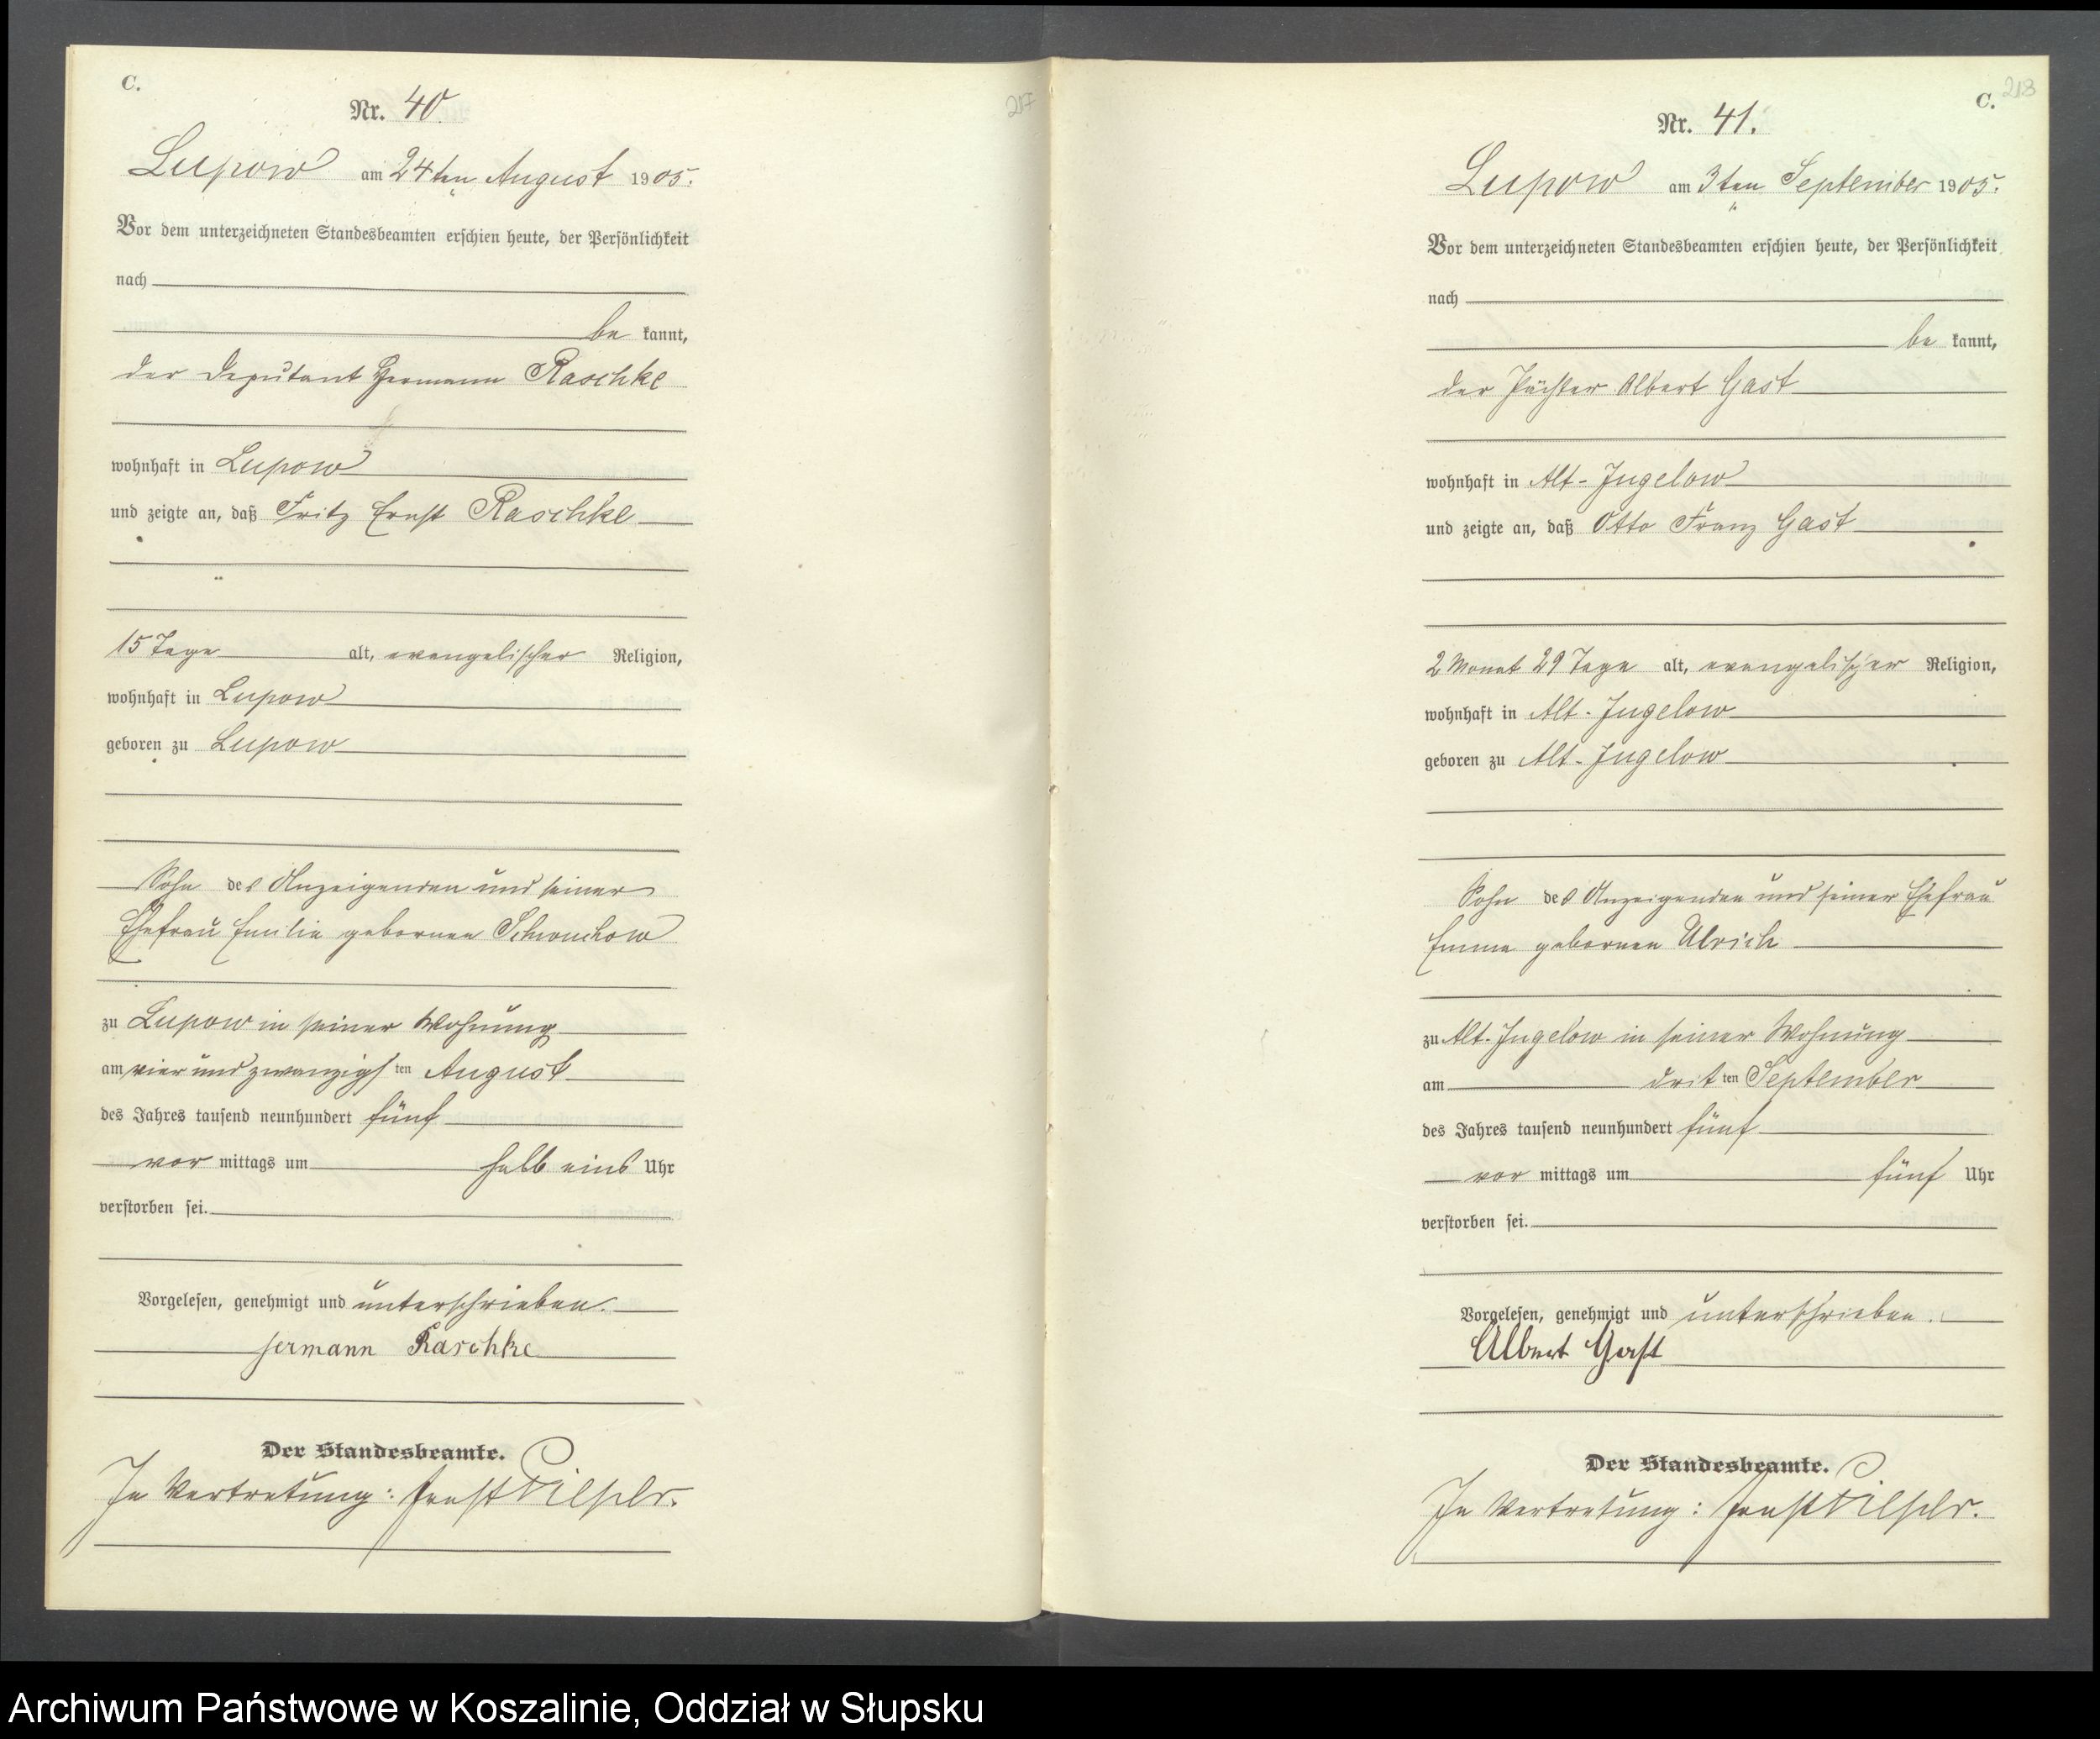 C.
Nr. 40.
Lupow am 24ten August 1905.
Vor dem unterzeichneten Standesbeamten erschien heute, der Persönlichkeit
nach
be kannt,
der Deputant Hermann Raschke
wohnhaft in Lupow
und zeigte an, daß Fritz Ernst Raschke
15 Tage alt, evangelischer Religion,
wohnhaft in Lupow
geboren zu Lupow
Sohn des Anzeigenden und seiner
Ehefrau Emilie gebornen
zu Lupow in seiner Wohnung
am vier und zwanzigsten August
des Jahres tausend neunhundert fünf
vor mittags um halb eins Uhr
verstorben sei.
Vorgelesen, genehmigt und unterschrieben.
Hermann Raschke
Der Standesbeamte.
In Vertretung: Ernst
217
C.
213
Nr. 41.
Lupow am 3ten September 1905.
Vor dem unterzeichneten Standesbeamten erschien heute, der Persönlichkeit
nach
be kannt,
der Pächter Albert Gast
wohnhaft in Alt-Jugelow
und zeigte an, daß Otto Franz Gast
2 Monat 29 Tage alt, evangelischer Religion,
wohnhaft in Alt-Jugelow
geboren zu Alt-Jugelow
Sohn des Anzeigenden und seiner Ehefrau
Emma gebornen Ulrich
zu Alt-Jugelow in seiner Wohnung
am dritten September
des Jahres tausend neunhundert fünf
vor mittags um fünf Uhr
verstorben sei.
Vorgelesen, genehmigt und unterschrieben.
Albert Gast
Der Standesbeamte.
In Vertretung: Ernst
Archiwum Państwowe w Koszalinie, Oddział w Słupsku